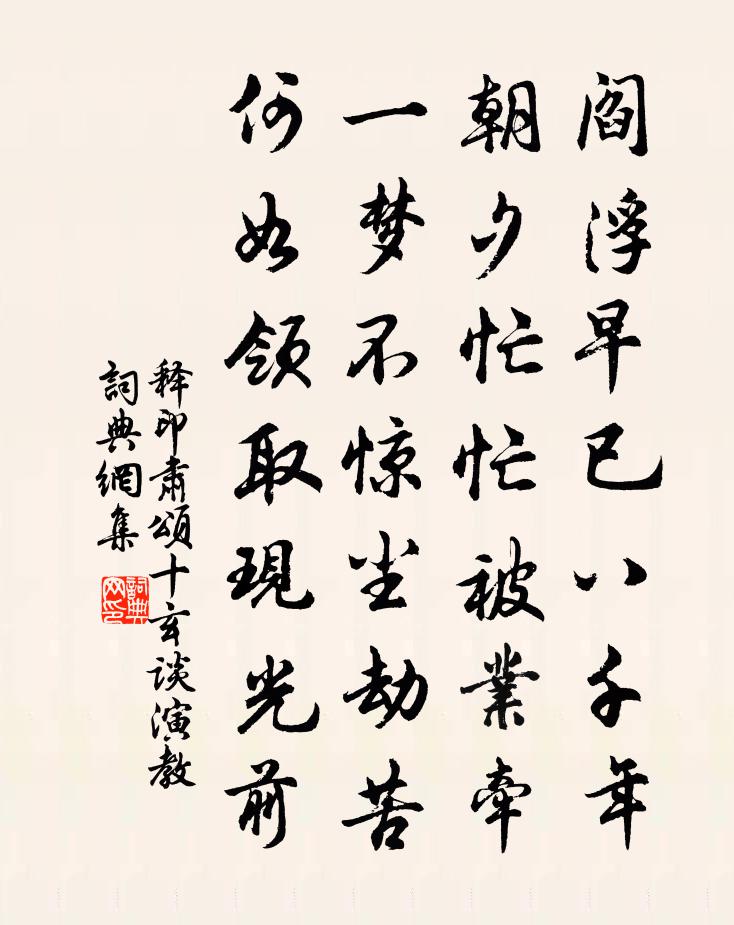 阎浮早已八千年
朝夕忙忙被業牵
一梦不惊尘劫苦
何如领取現光前
释印肃頌十玄谈演教
詞典網集
詞典网印